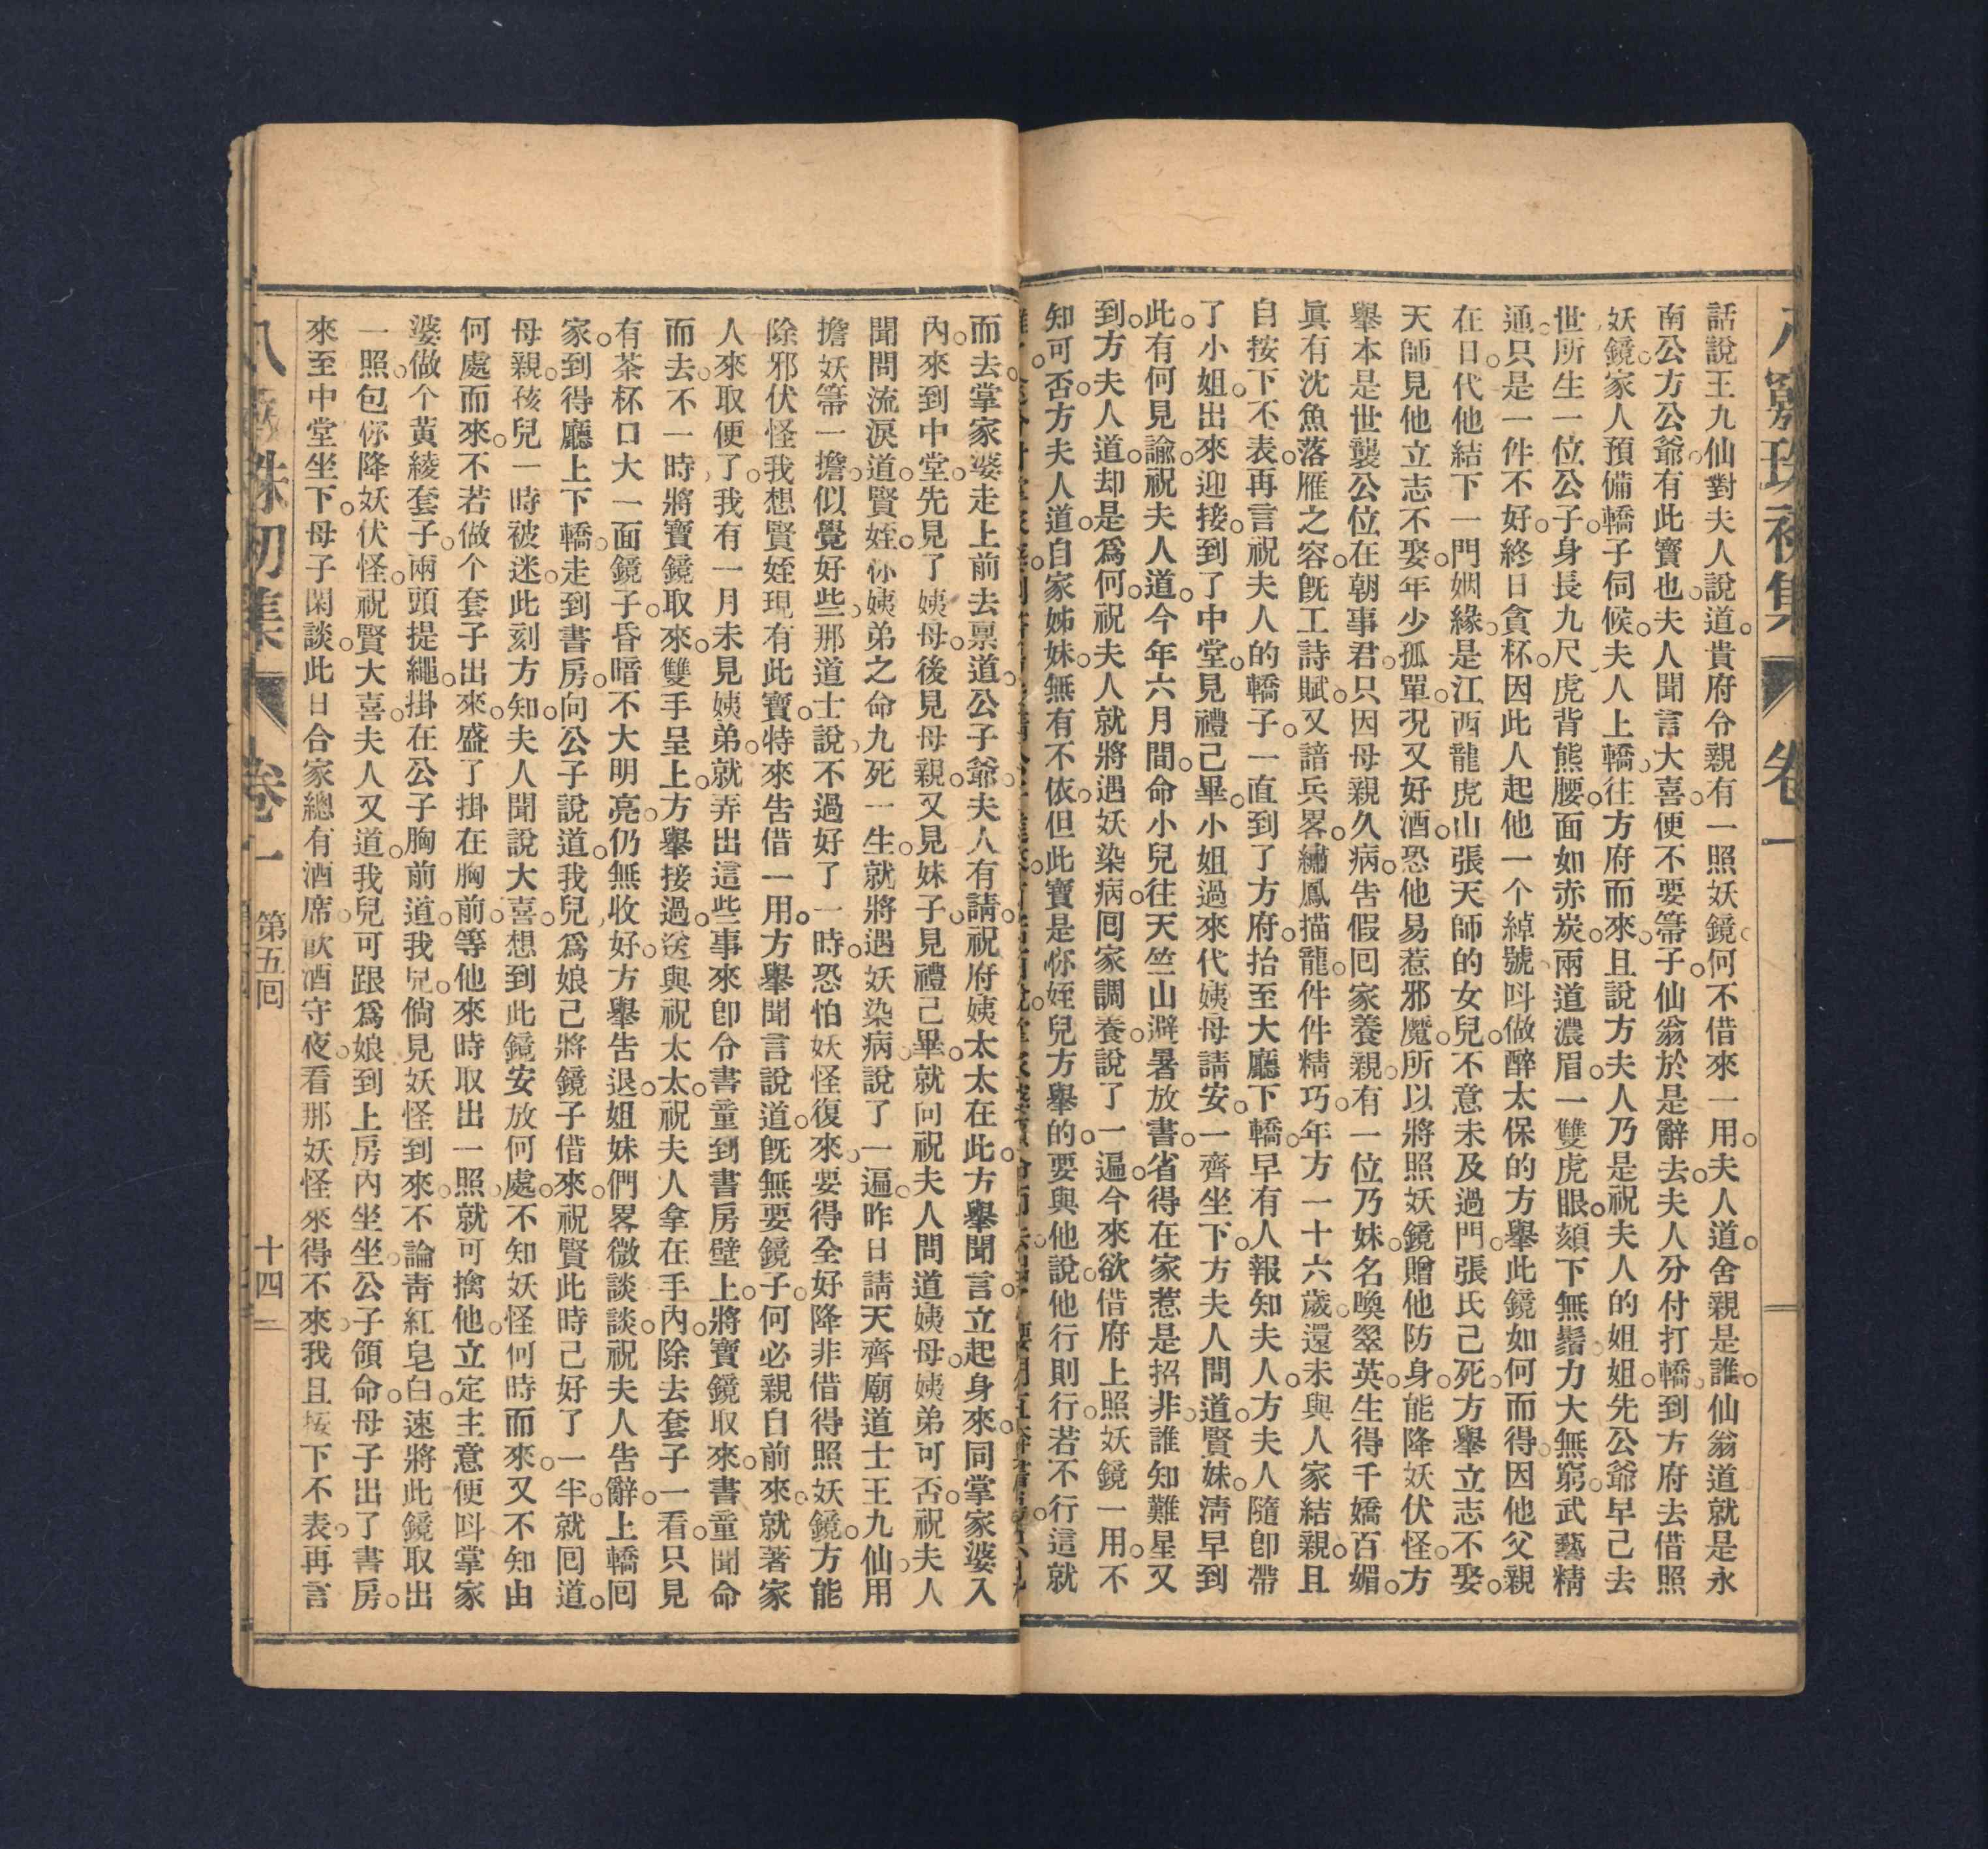 卷一
話說王九仙對夫人說道。貴府令親有一照妖鏡。何不借來一用。夫人道。舍親是誰。仙翁道就是永
南公方公爺。有此寶也。夫人聞言大喜。便不要箒子。仙翁於是辭去。夫人分付打轎。到方府去借照
妖鏡。家人預備轎子伺候。夫人上轎。往方府而來。且說方夫人乃是祝夫人的姐姐。先公爺早已去
世。所生一位公子。身長九尺。虎背熊腰。面如赤炭。兩道濃眉。一雙虎眼。頦下無鬍。力大無窮。武藝精
通。只是一件不好。終日貪杯。因此人起他一个綽號。叫做醉太保的方舉。此鏡如何而得。因他父親
在日。代他結下一門姻緣。是江西龍虎山張天師的女兒。不意未及過門。張氏己死。方舉立志不娶。
天師見他立志不娶。年少孤單。況又好酒。恐他易惹邪魔。所以將照妖鏡贈他防身。能降妖伏怪。方
舉本是世襲公位。在朝事君。只因母親久病。告假回家養親。有一位乃妹。名喚翠英。生得千嬌百媚。
眞有沈魚落雁之容。旣工詩賦。又諳兵畧。繡鳳描龍。件件精巧。年方一十六歲。還未與人家結親。且
自按下不表。再言祝夫人的轎子。一直到了方府。抬至大廳下轎。早有人報知夫人。方夫人隨卽帶
了小姐。出來迎接。到了中堂。見禮己畢。小姐過來代姨母請安。一齊坐下。方夫人問道。賢妹淸早到
此。有何見諭。祝夫人道。今年六月間。命小兒往天竺山避暑放書。省得在家惹是招非。誰知難星又
到。方夫人道。却是爲何。祝夫人就將遇妖染病。回家調養。說了一遍。今來欲借府上照妖鏡一用。不
知可否。方夫人道。自家姊妹。無有不依。但此寶是你姪兒方舉的。要與他說。他行則行。若不行。這就
而去。掌家婆走上前去。禀道。公子爺。夫人有請。祝府姨太太在此。方舉聞言。立起身來。同掌家婆入
內。來到中堂。先見了姨母。後見母親。又見妹子。見禮己畢。就問祝夫人問道。姨母。姨弟可否。祝夫人
聞問流淚道。賢姪。你姨弟之命九死一生。就將遇妖染病。說了一遍。昨日請天齊廟道士王九仙。用
擔妖箒一擔。似覺好些。那道士說。不過好了一時。恐怕妖怪復來。要得全好降非借得照妖鏡。方能
除邪伏怪。我想賢姪現有此寶。特來告借一用。方舉聞言說道。旣無要鏡子。何必親自前來。就著家
人來取便了。我有一月未見姨弟。就弄出這些事來。卽令書童到書房壁上。將寶鏡取來。書童聞命
而去。不一時將寶鏡取來。雙手呈上。方舉接過。送與祝太太。祝夫人拿在手內。除去套子一看。只見
有茶杯口大一面鏡子。昏暗不大明亮。仍無收好。方舉告退。姐妹們畧微談談。祝夫人告辭。上轎回
家。到得廳上下轎。走到書房。向公子說道。我兒爲娘己將鏡子借來。祝賢此時己好了一半。就回道。
母親。孩兒一時被迷。此刻方知。夫人聞說大喜。想到此鏡安放何處。不知妖怪何時而來。又不知由
何處而來。不若做个套子。出來。盛了掛在胸前。等他來時取出一照。就可擒他。立定主意便叫掌家
婆做个黃綾套子。兩頭提繩。掛在公子胸前道。我兒。倘見妖怪到來。不論靑紅皂白。速將此鏡取出
一照。包你降妖伏怪。祝賢大喜。夫人又道。我兒可跟爲娘到上房內坐坐。公子領命。母子出了書房。
來至中堂坐下。母子閑談。此日合家總有酒席。飮酒守夜。看那妖怪來得不來。我且按下不表。再言
卷一 第五回 十四